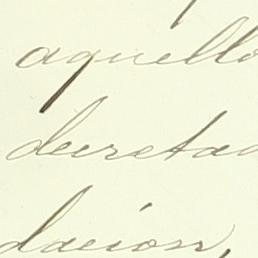 aquello
decretad
dación,